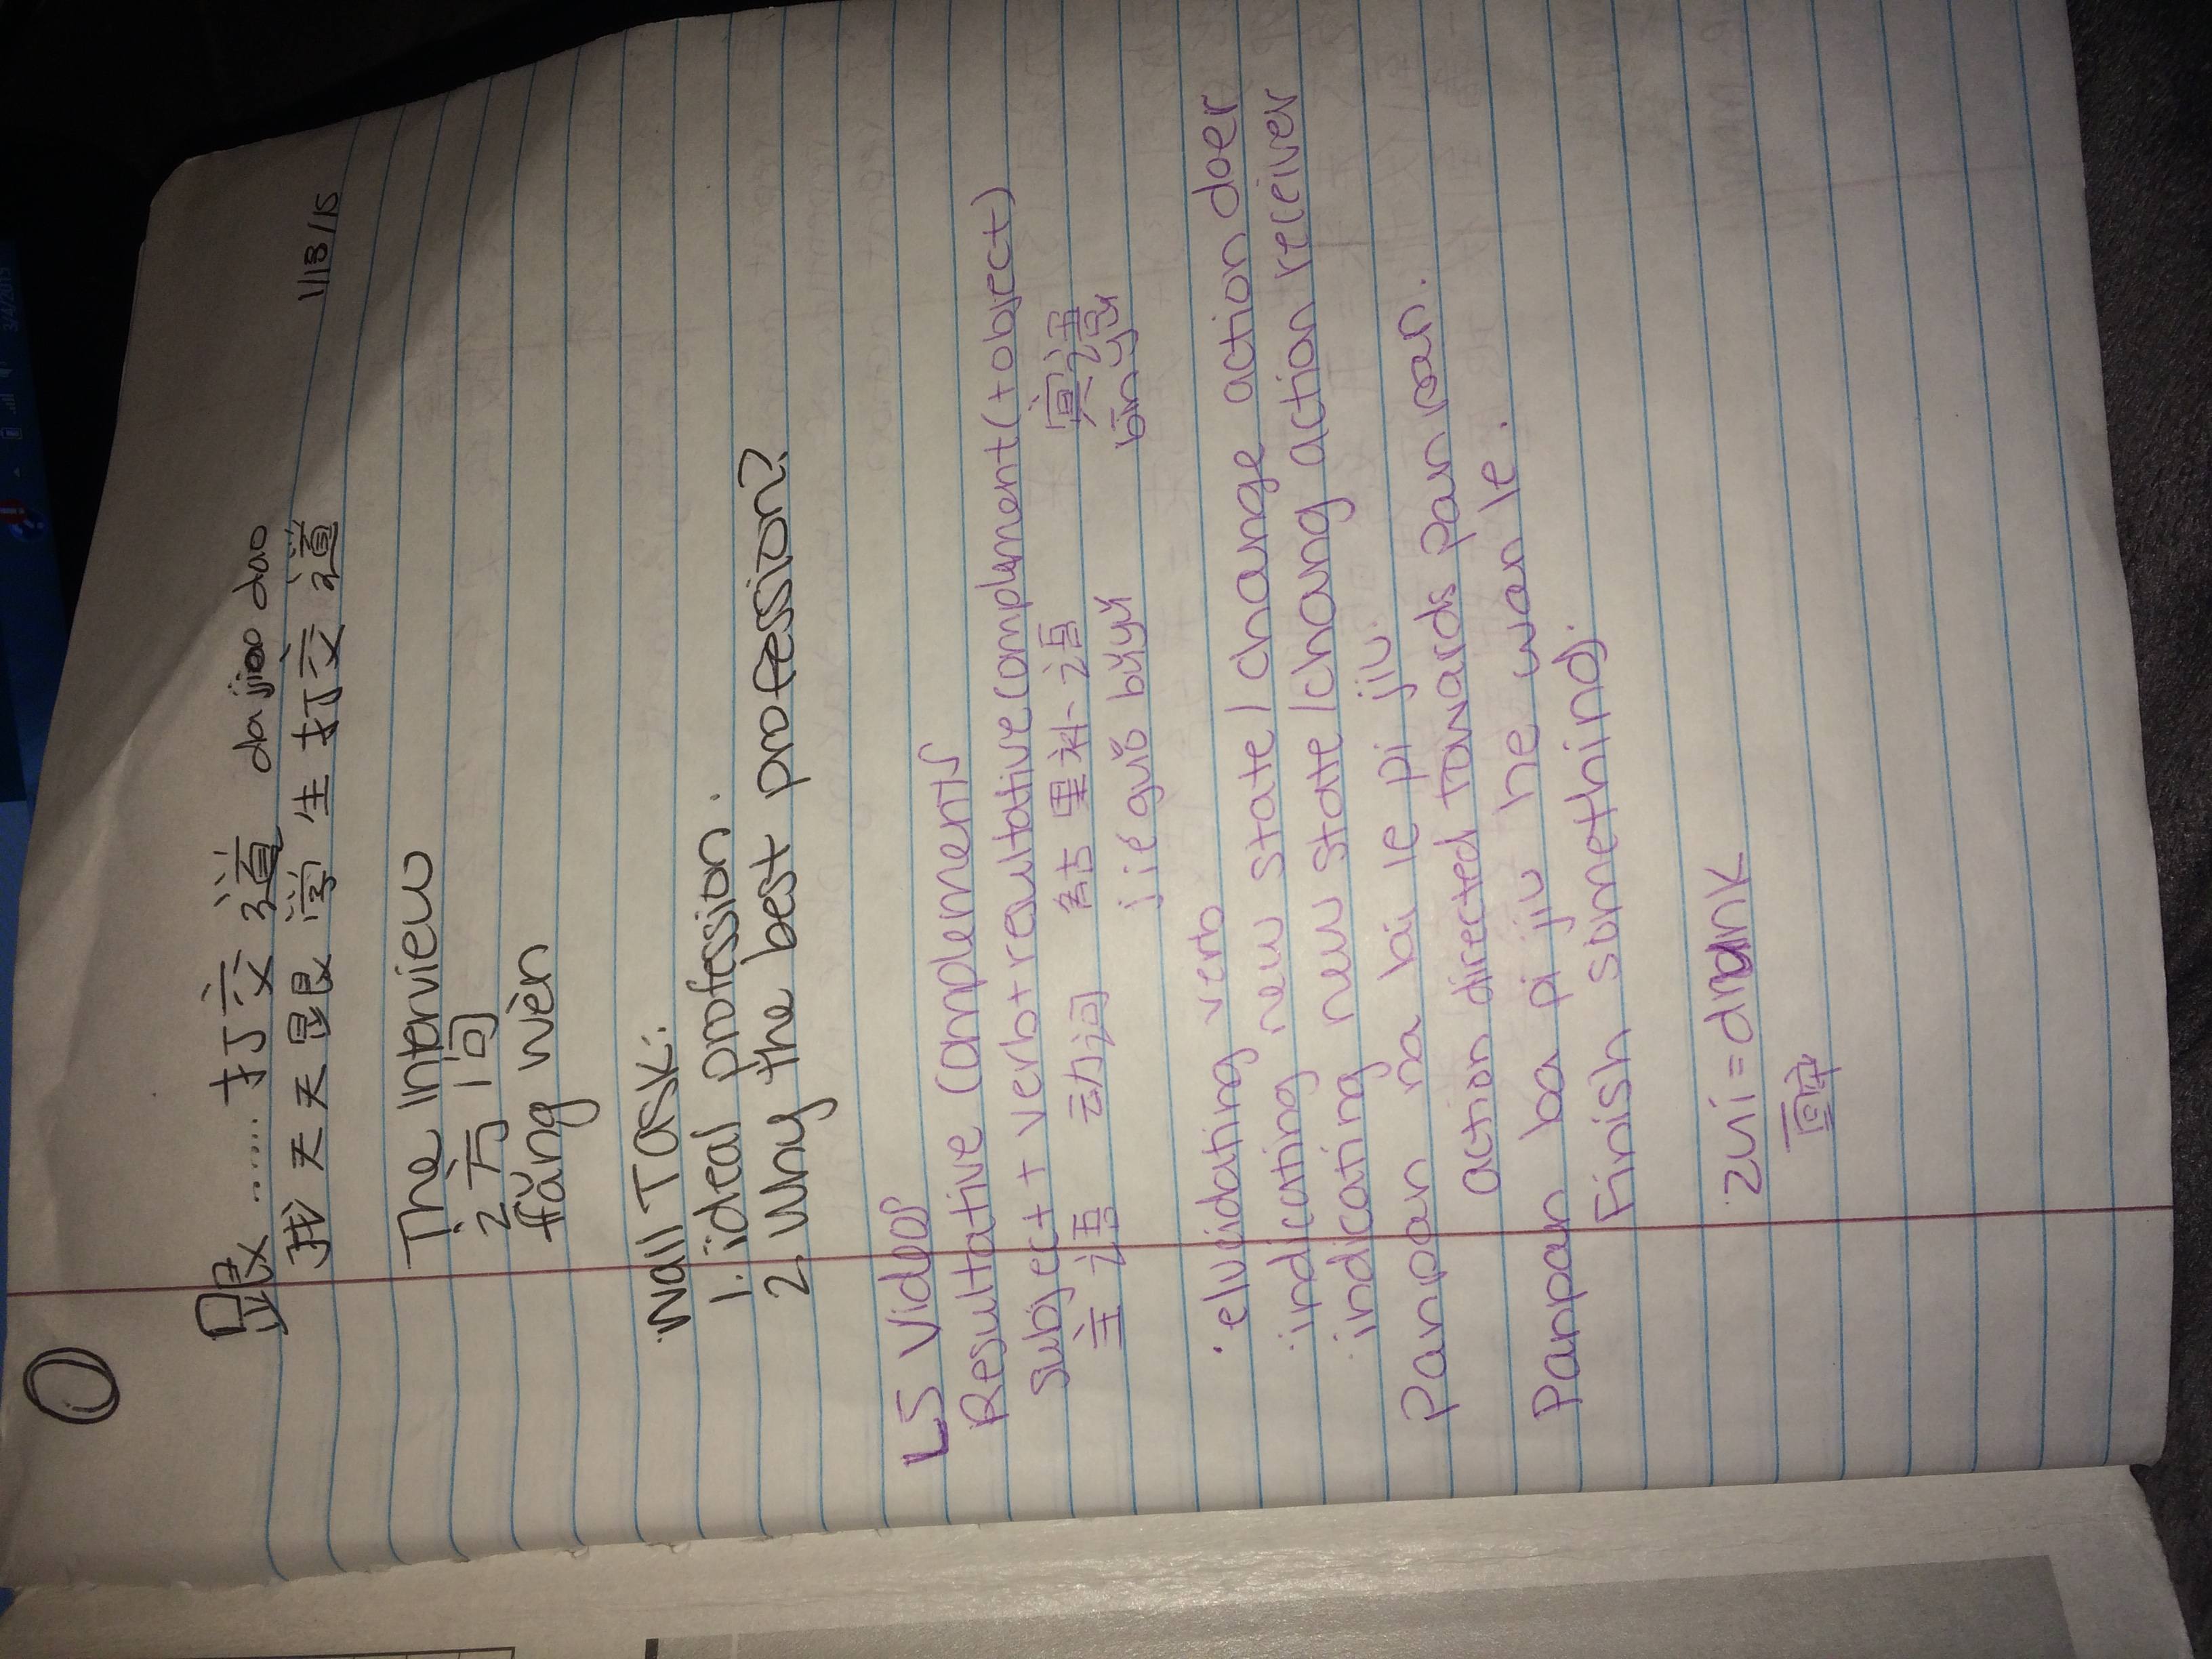 跟......打交道 da jiao dao
我天天跟学生打交道 1/13/15
The Interview
访问
fǎng wèn
Wall Task:
1. ideal profession.
2. Why the best profession?
L5 Videos
Resultative Complements
Subject + verb + resultative complement (+ object)
主语 动词 结果补语 宾语
jié guǒ bǔ yǔ bīn yǔ
· elucidating verb
· indicating new state / change action doer
· indicating new state / chang action receiver
Panpan na bai le pi jiu.
action directed towards Pan pan.
Panpan ba pi jiu he wan le.
Finish something.
zui = drunk
3/4/2015